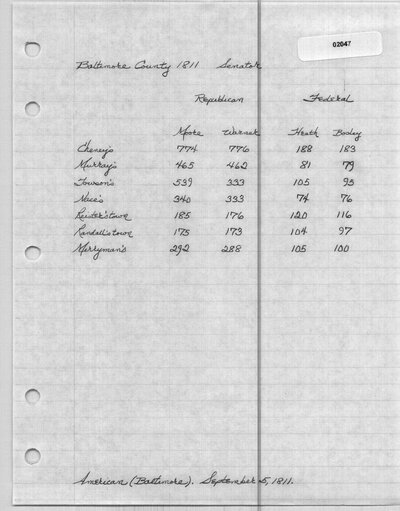 02047
Baltimore County 1811 Senator
Republican Federal
Moore Warner Heath Bosley
Cheney's 774 776 188 183
Murray's 465 462 81 79
Towson's 539 333 105 95
340 333 74 76
Reister'stown 185 176 120 116
Randall'stown 175 173 104 97
Merryman's 292 288 105 100
American (Baltimore). September 5, 1811.